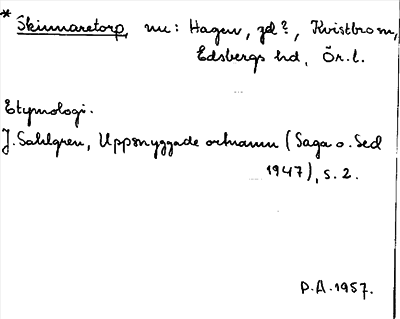 * Skinnaretorp, nu: Hagen, gd?, Kvistbro sn,
Edsbergs hd, Ör. l.
Etymologi.
J. Sahlgren, Uppsnyggade ortnamn (Saga o. Sed
1947), s. 2.
P.A. 1957.